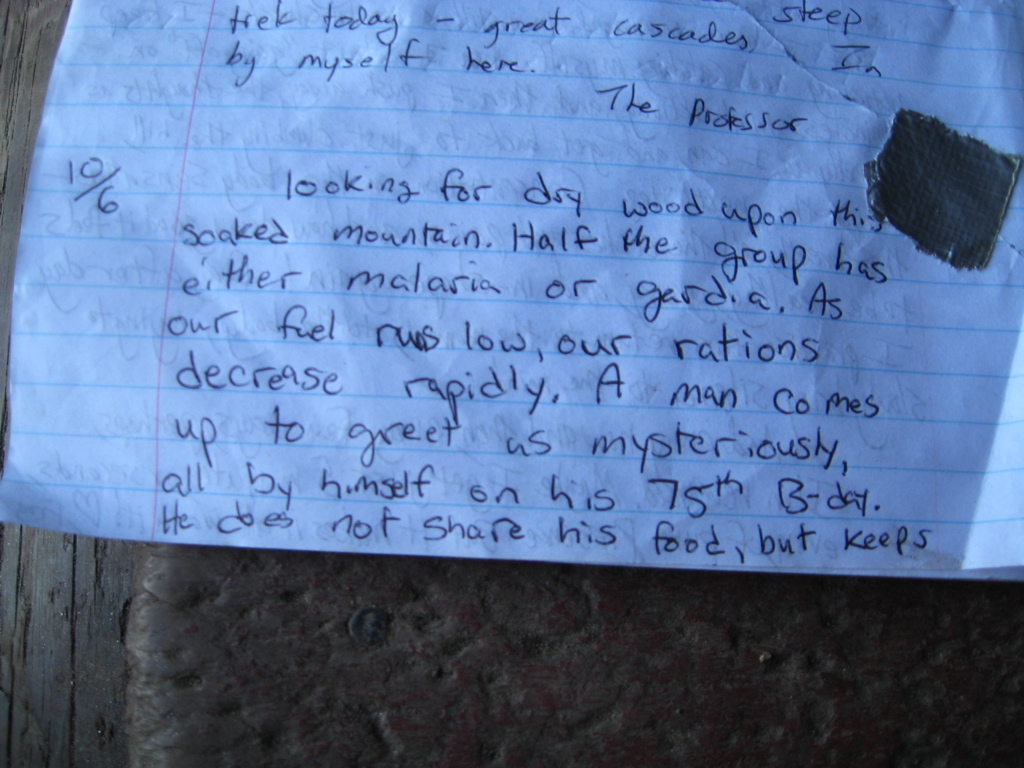 trek today - great cascades steep
by myself here. In
The Professor
10/6 looking for dry wood upon this
soaked mountain. Half the group has
either malaria or gardia. As
our fuel runs low, our rations
decrease rapidly. A man comes
up to greet us mysteriously,
all by himself on his 75th B-day.
He does not share his food, but keeps